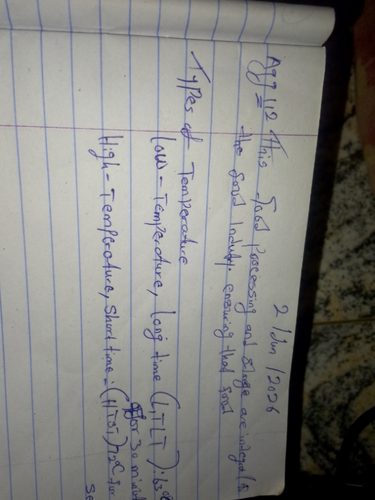 2/Jun/2026
Agg 112 This food processing and storage are integral
the food Industry. ensuring that food
Types of Temperature
Low - Temperature, Long time (LTLT):
for 30 minut
High - Temperature, Short time: (HTST) 72°C for
se